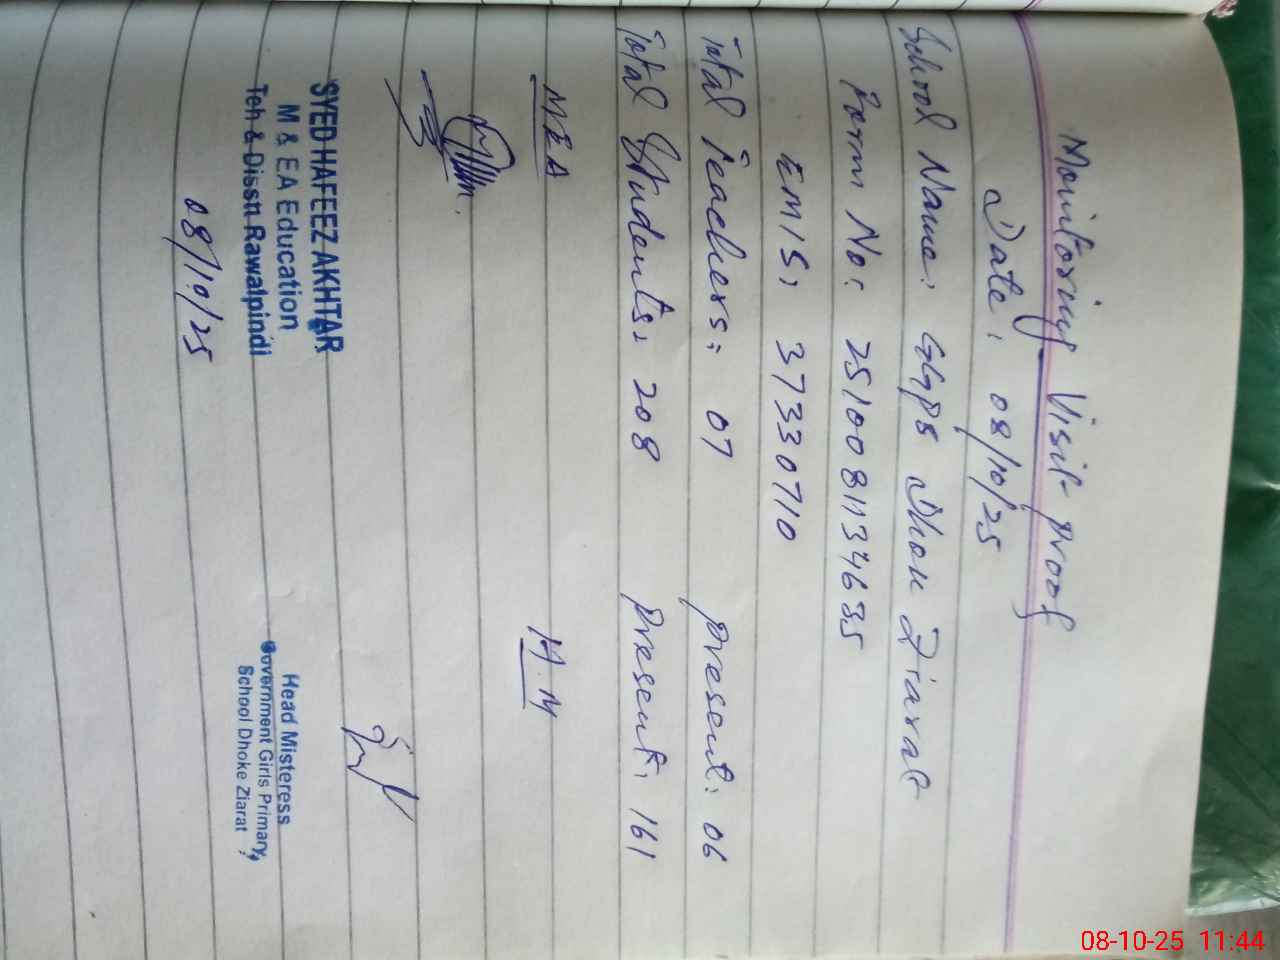 Monitoring Visit proof
Date: 08/10/25
School Name: GGPS Dhok Ziarat
Form No: 2510081134635
EMIS: 37330710
Total Teachers: 07 present: 06
Total Students: 208 Present: 161
MEA H.M
SYED HAFEEZ AKHTAR
M & EA Education
Teh & Disstt Rawalpindi
08/10/25
Head Misteress
Government Girls Primary,
School Dhoke Ziarat
08-10-25 11:44